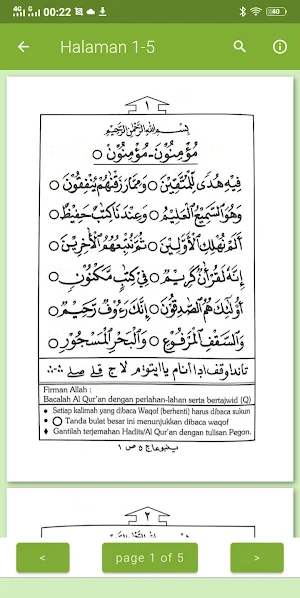 00:22
40
Halaman 1-5
١
بِسْمِ اللهِ الرَّحْمٰنِ الرَّحِيْمِ
مُؤْمِنُوْنَ - مُؤْمِنُوْنْ ○
فِيْهِ هُدًى لِّلْمُتَّقِيْنَ ○ وَمِمَّا رَزَقْنٰهُمْ يُنْفِقُوْنَ ○
وَهُوَ السَّمِيْعُ الْعَلِيْمُ ○ وَعِنْدَنَا كِتٰبٌ حَفِيْظٌ ○
اَلَمْ نُهْلِكِ الْاَوَّلِيْنَ ○ ثُمَّ نُتْبِعُهُمُ الْاٰخِرِيْنَ ○
اِنَّهٗ لَقُرْاٰنٌ كَرِيْمٌ ○ فِيْ كِتٰبٍ مَّكْنُوْنٍ ○
اُولٰٓئِكَ هُمُ الصّٰدِقُوْنَ ○ اِنَّكَ رَءُوْفٌ رَّحِيْمٌ ○
وَالسَّقْفِ الْمَرْفُوْعِ ○ وَالْبَحْرِ الْمَسْجُوْرِ ○
Firman Allah :
Bacalah Al Qur'an dengan perlahan-lahan serta bertajwid (Q)
• Setiap kalimah yang dibaca Waqof (berhenti) harus dibaca sukun
• ○ Tanda bulat besar ini menunjukkan dibaca waqof
♦ Gantilah terjemahan Hadits/Al Qur'an dengan tulisan Pegon.
ينبوعا ج ٥ ص ١
٢
<
page 1 of 5
>